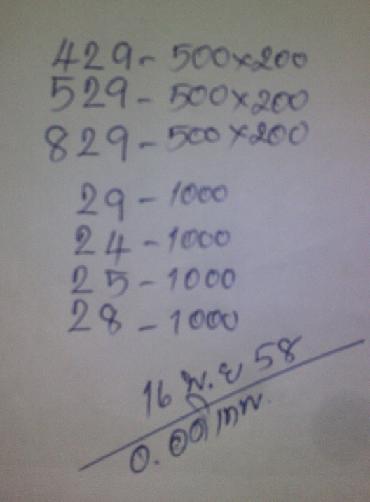 429 - 500x200
529 - 500x200
829 - 500x200
29 - 1000
24 - 1000
25 - 1000
28 - 1000
16 พ.ย 58
อ.อดิเทพ.